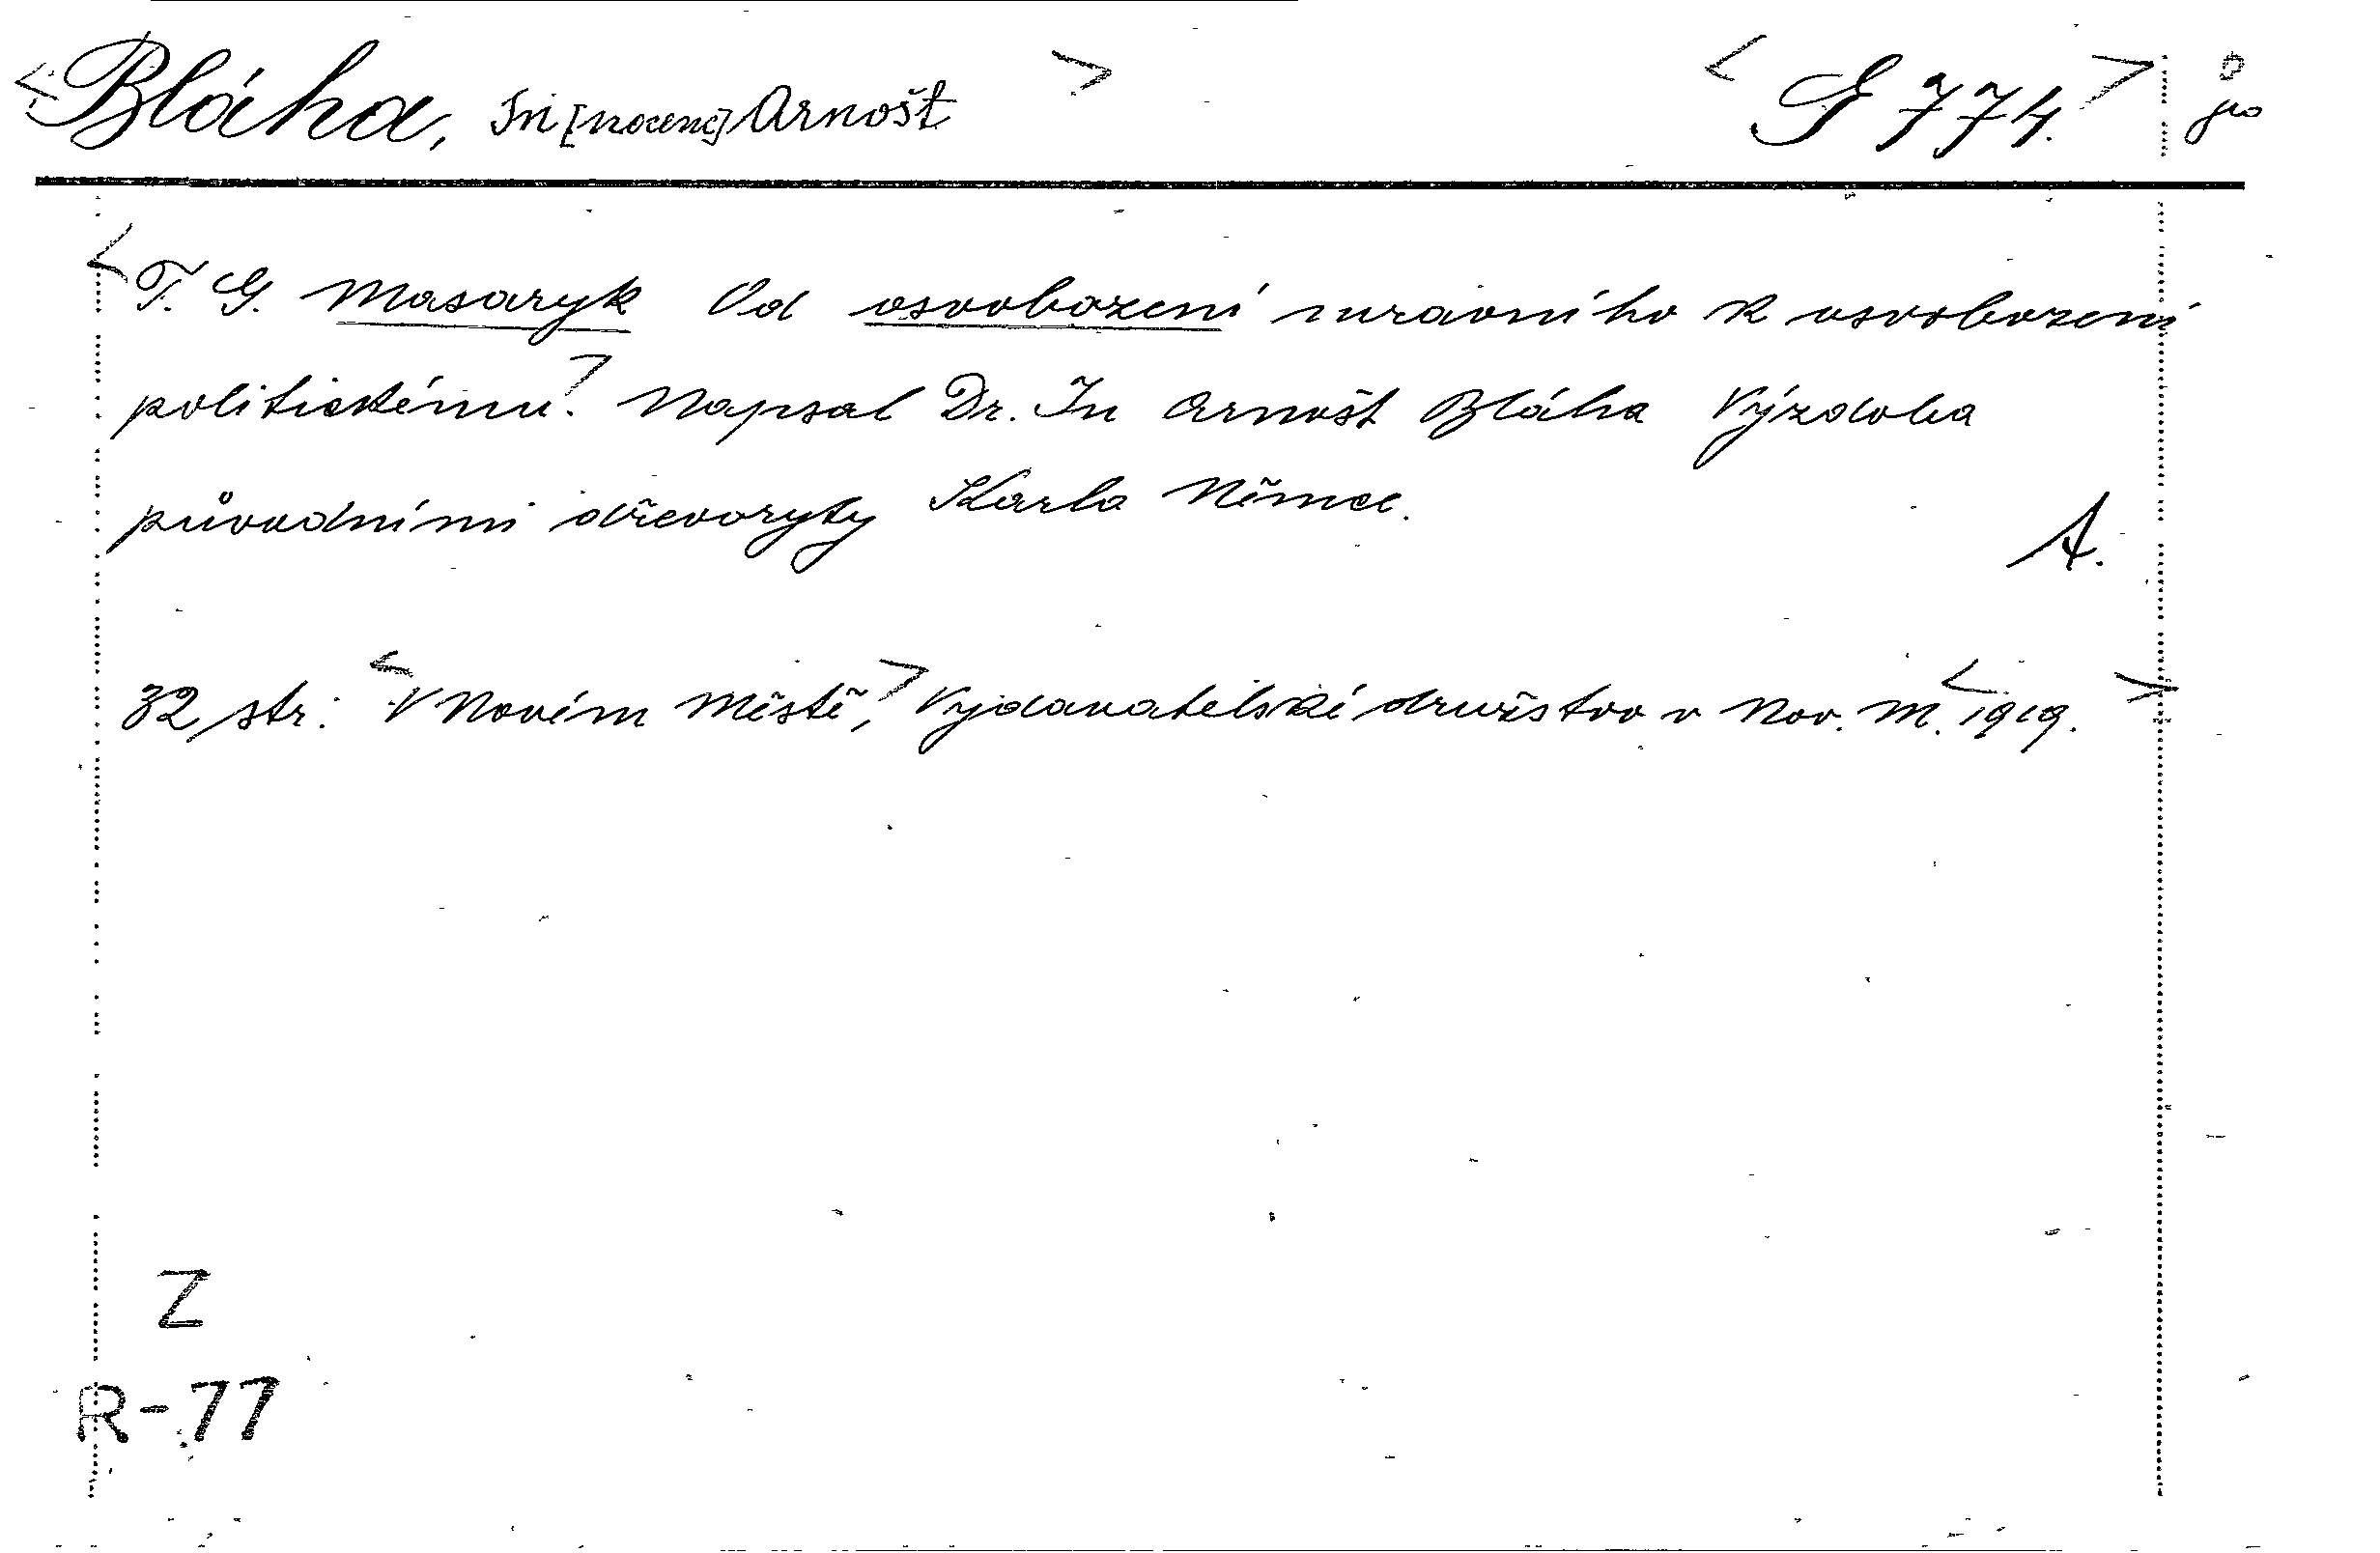 <Bláha, In[nocenc] Arnošt> <G 774.>
<T. G. Masaryk Od osvobození mravního k osvobození
politickému.> Napsal Dr. In Arnošt Bláha Výzdoba
původními dřevoryty Karla Němce.
A.
32 str. <V Novém Městě,> Vydavatelské družstvo v Nov. M. <1919.>
Z
R-77